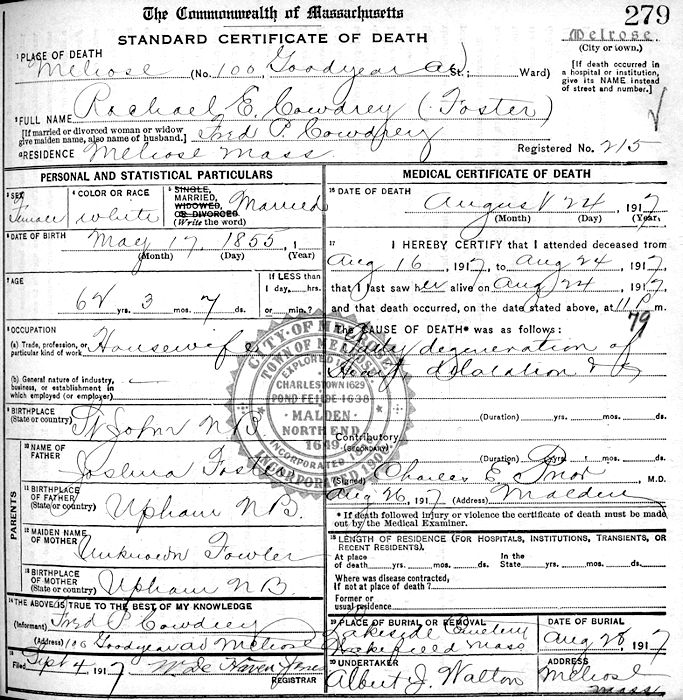 The Commonwealth of Massachusetts
279
STANDARD CERTIFICATE OF DEATH
Melrose
(City or town.)
1 PLACE OF DEATH
Melrose (No. 100, Goodyear Av St.; Ward)
[If death occurred in a hospital or institution, give its NAME instead of street and number.]
2 FULL NAME Rachael E. Cowdrey (Foster)
[If married or divorced woman or widow give maiden name, also name of husband.] Fred P. Cowdrey
RESIDENCE Melrose Mass.
Registered No. 215
PERSONAL AND STATISTICAL PARTICULARS
3 SEX
Female
4 COLOR OR RACE
white
5 SINGLE, MARRIED, WIDOWED, OR DIVORCED (Write the word)
Married
6 DATE OF BIRTH
May 17, 1855, 1
(Month) (Day) (Year)
7 AGE
62 yrs. 3 mos. 7 ds.
If LESS than 1 day, hrs. or min.?
8 OCCUPATION
(a) Trade, profession, or particular kind of work Housewife
(b) General nature of industry, business, or establishment in which employed (or employer)
9 BIRTHPLACE
(State or country) St John N.B.
PARENTS
10 NAME OF FATHER
Joshua Foster
11 BIRTHPLACE OF FATHER
(State or country) Upham N.B.
12 MAIDEN NAME OF MOTHER
Unknown Fowler
13 BIRTHPLACE OF MOTHER
(State or country) Upham N.B.
14 THE ABOVE IS TRUE TO THE BEST OF MY KNOWLEDGE
(Informant) Fred P Cowdrey
(Address) 100 Goodyear av Melrose
15
Filed Sept 4, 1917 Wm De Haven Jones
REGISTRAR
MEDICAL CERTIFICATE OF DEATH
16 DATE OF DEATH
August 24, 1917
(Month) (Day) (Year)
17 I HEREBY CERTIFY that I attended deceased from
Aug 16, 1917, to Aug 24, 1917,
that I last saw her alive on Aug 24, 1917,
and that death occurred, on the date stated above, at 11 P m.
79
The CAUSE OF DEATH* was as follows:
Fatty degeneration of
Heart dilatation
(Duration) yrs. mos. ds.
Contributory
(SECONDARY)
(Duration) yrs. mos. ds.
(Signed) Charles E. Prior, M.D.
Aug 26, 1917 (Address) Malden
* If death followed injury or violence the certificate of death must be made out by the Medical Examiner.
18 LENGTH OF RESIDENCE (FOR HOSPITALS, INSTITUTIONS, TRANSIENTS, OR RECENT RESIDENTS).
At place of death yrs. mos. ds. In the State yrs. mos. ds.
Where was disease contracted, if not at place of death?
Former or usual residence
19 PLACE OF BURIAL OR REMOVAL
Lakeside Cemetery
Wakefield Mass
DATE OF BURIAL
Aug 28, 1917
20 UNDERTAKER
Albert J. Walton
ADDRESS
Melrose Mass
CITY OF MELROSE
TOWN OF MELROSE
EXPLORED
CHARLESTOWN 1629
POND FEILDE 1638
MALDEN
NORTH END
1649
INCORPORATED
INCORPORATED